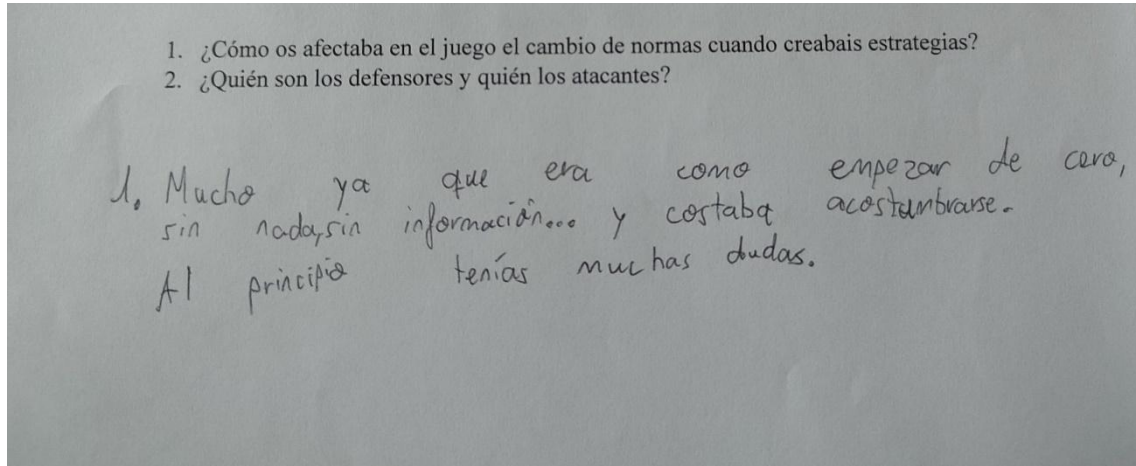 1. ¿Cómo os afectaba en el juego el cambio de normas cuando creabais estrategias?
2. ¿Quién son los defensores y quién los atacantes?
1. Mucho ya que era como empezar de cero,
sin nada, sin información... y costaba acostumbrarse.
Al principio tenías muchas dudas.